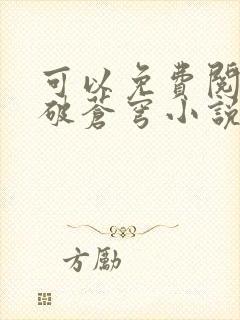 可以免費閱
破蒼穹小説
方勵